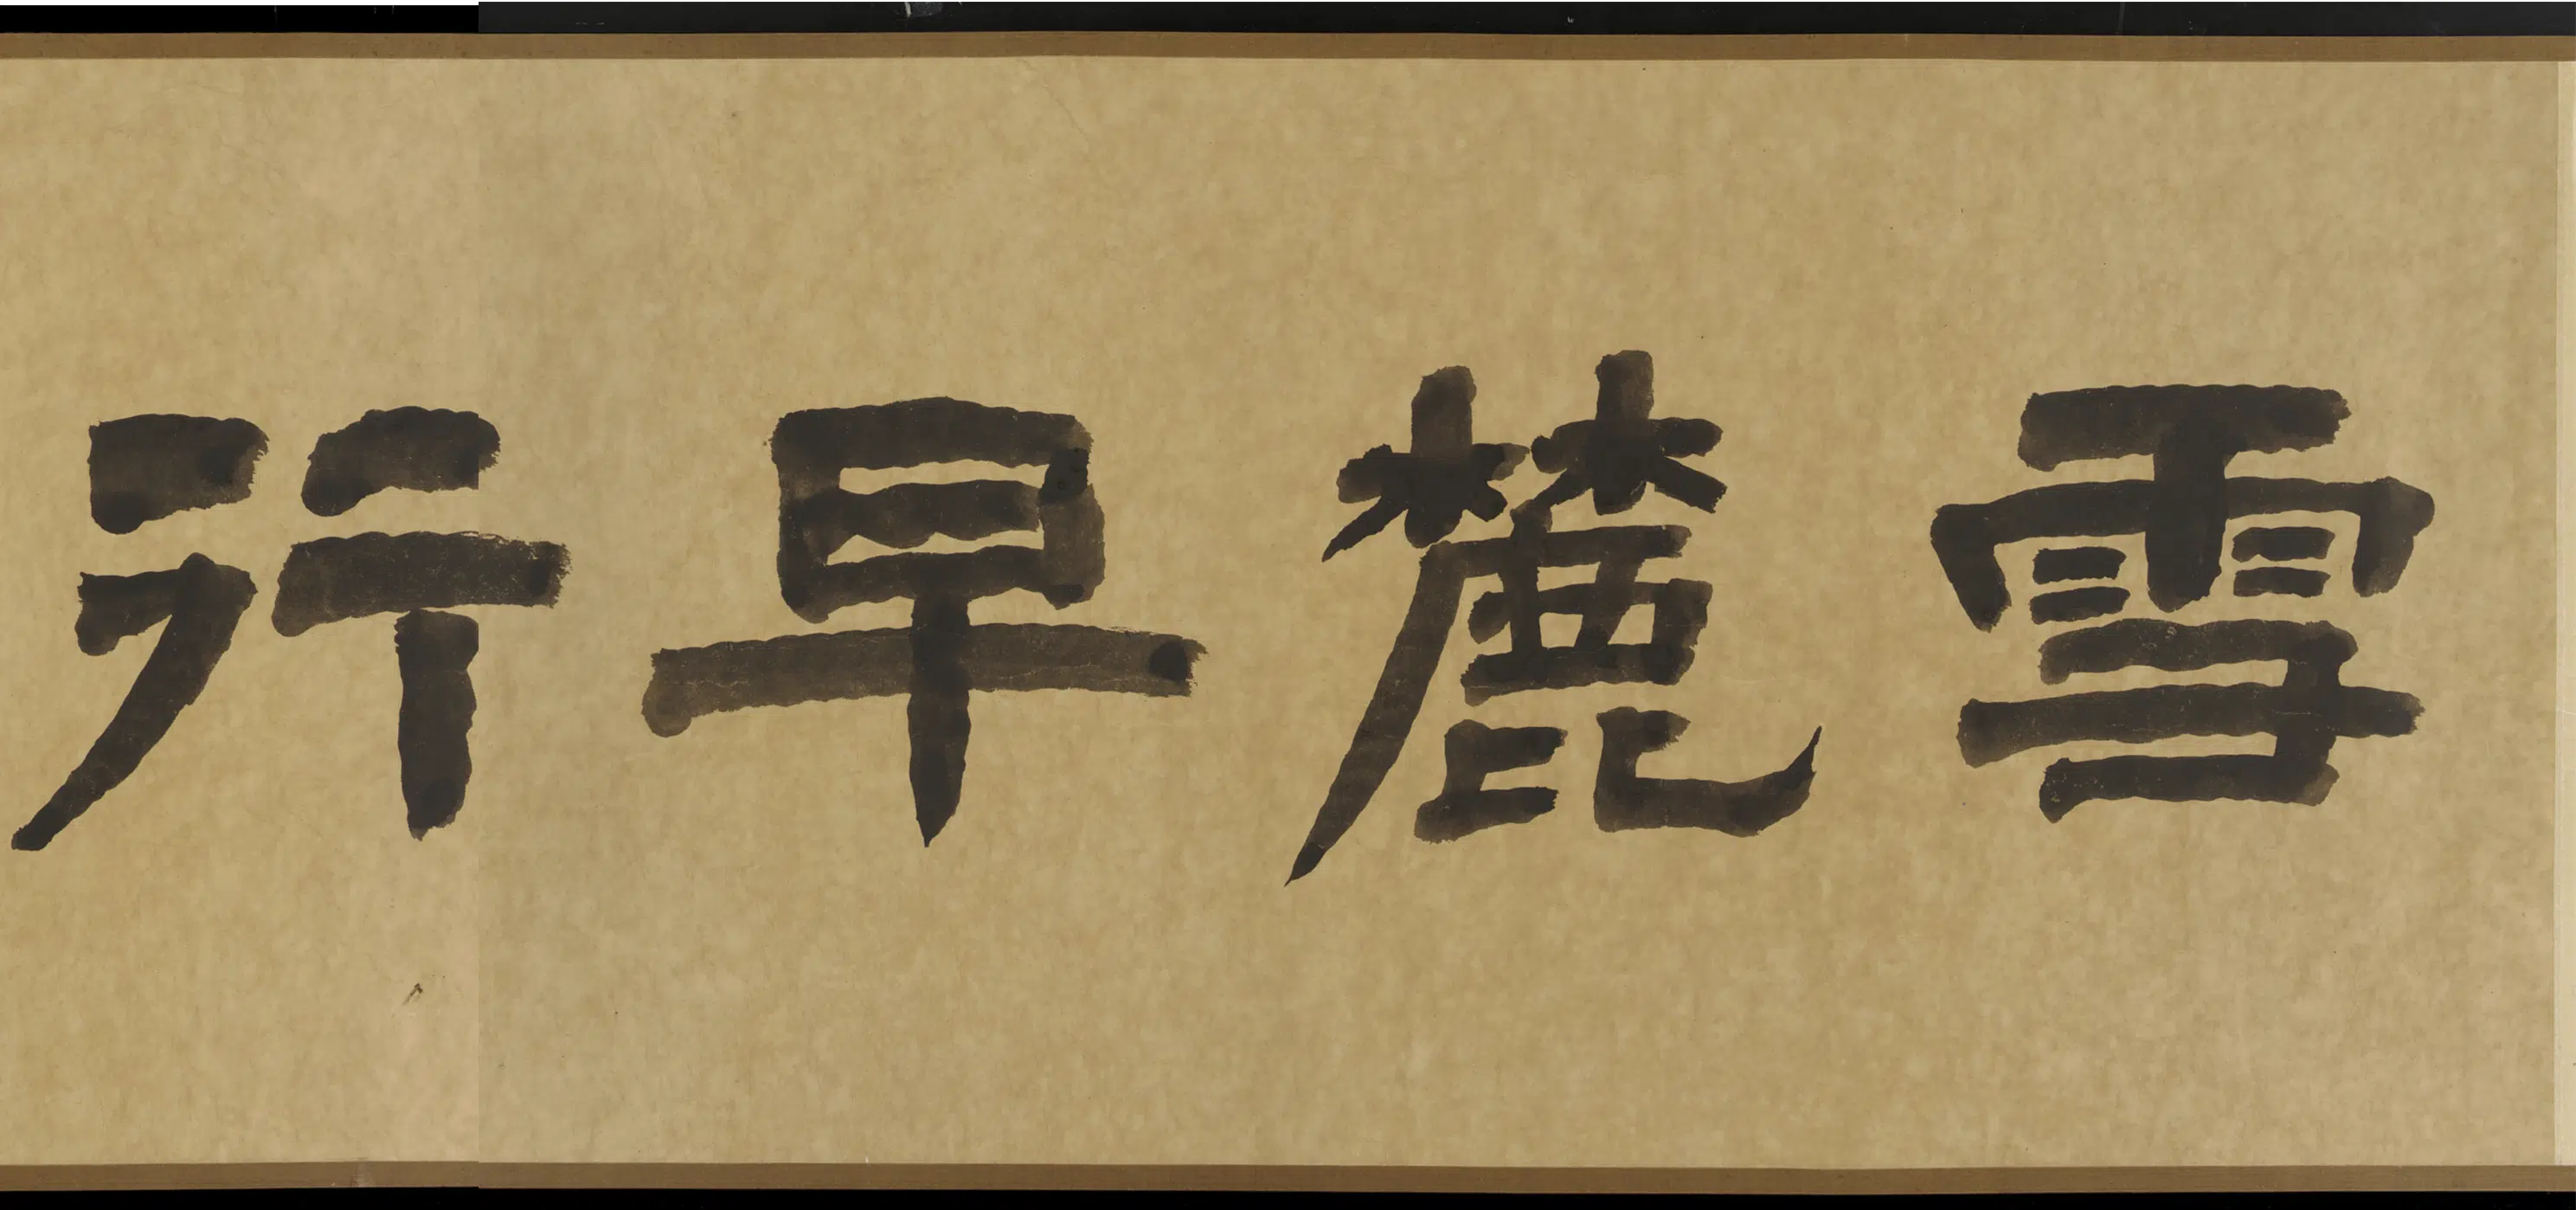 雪麓早行